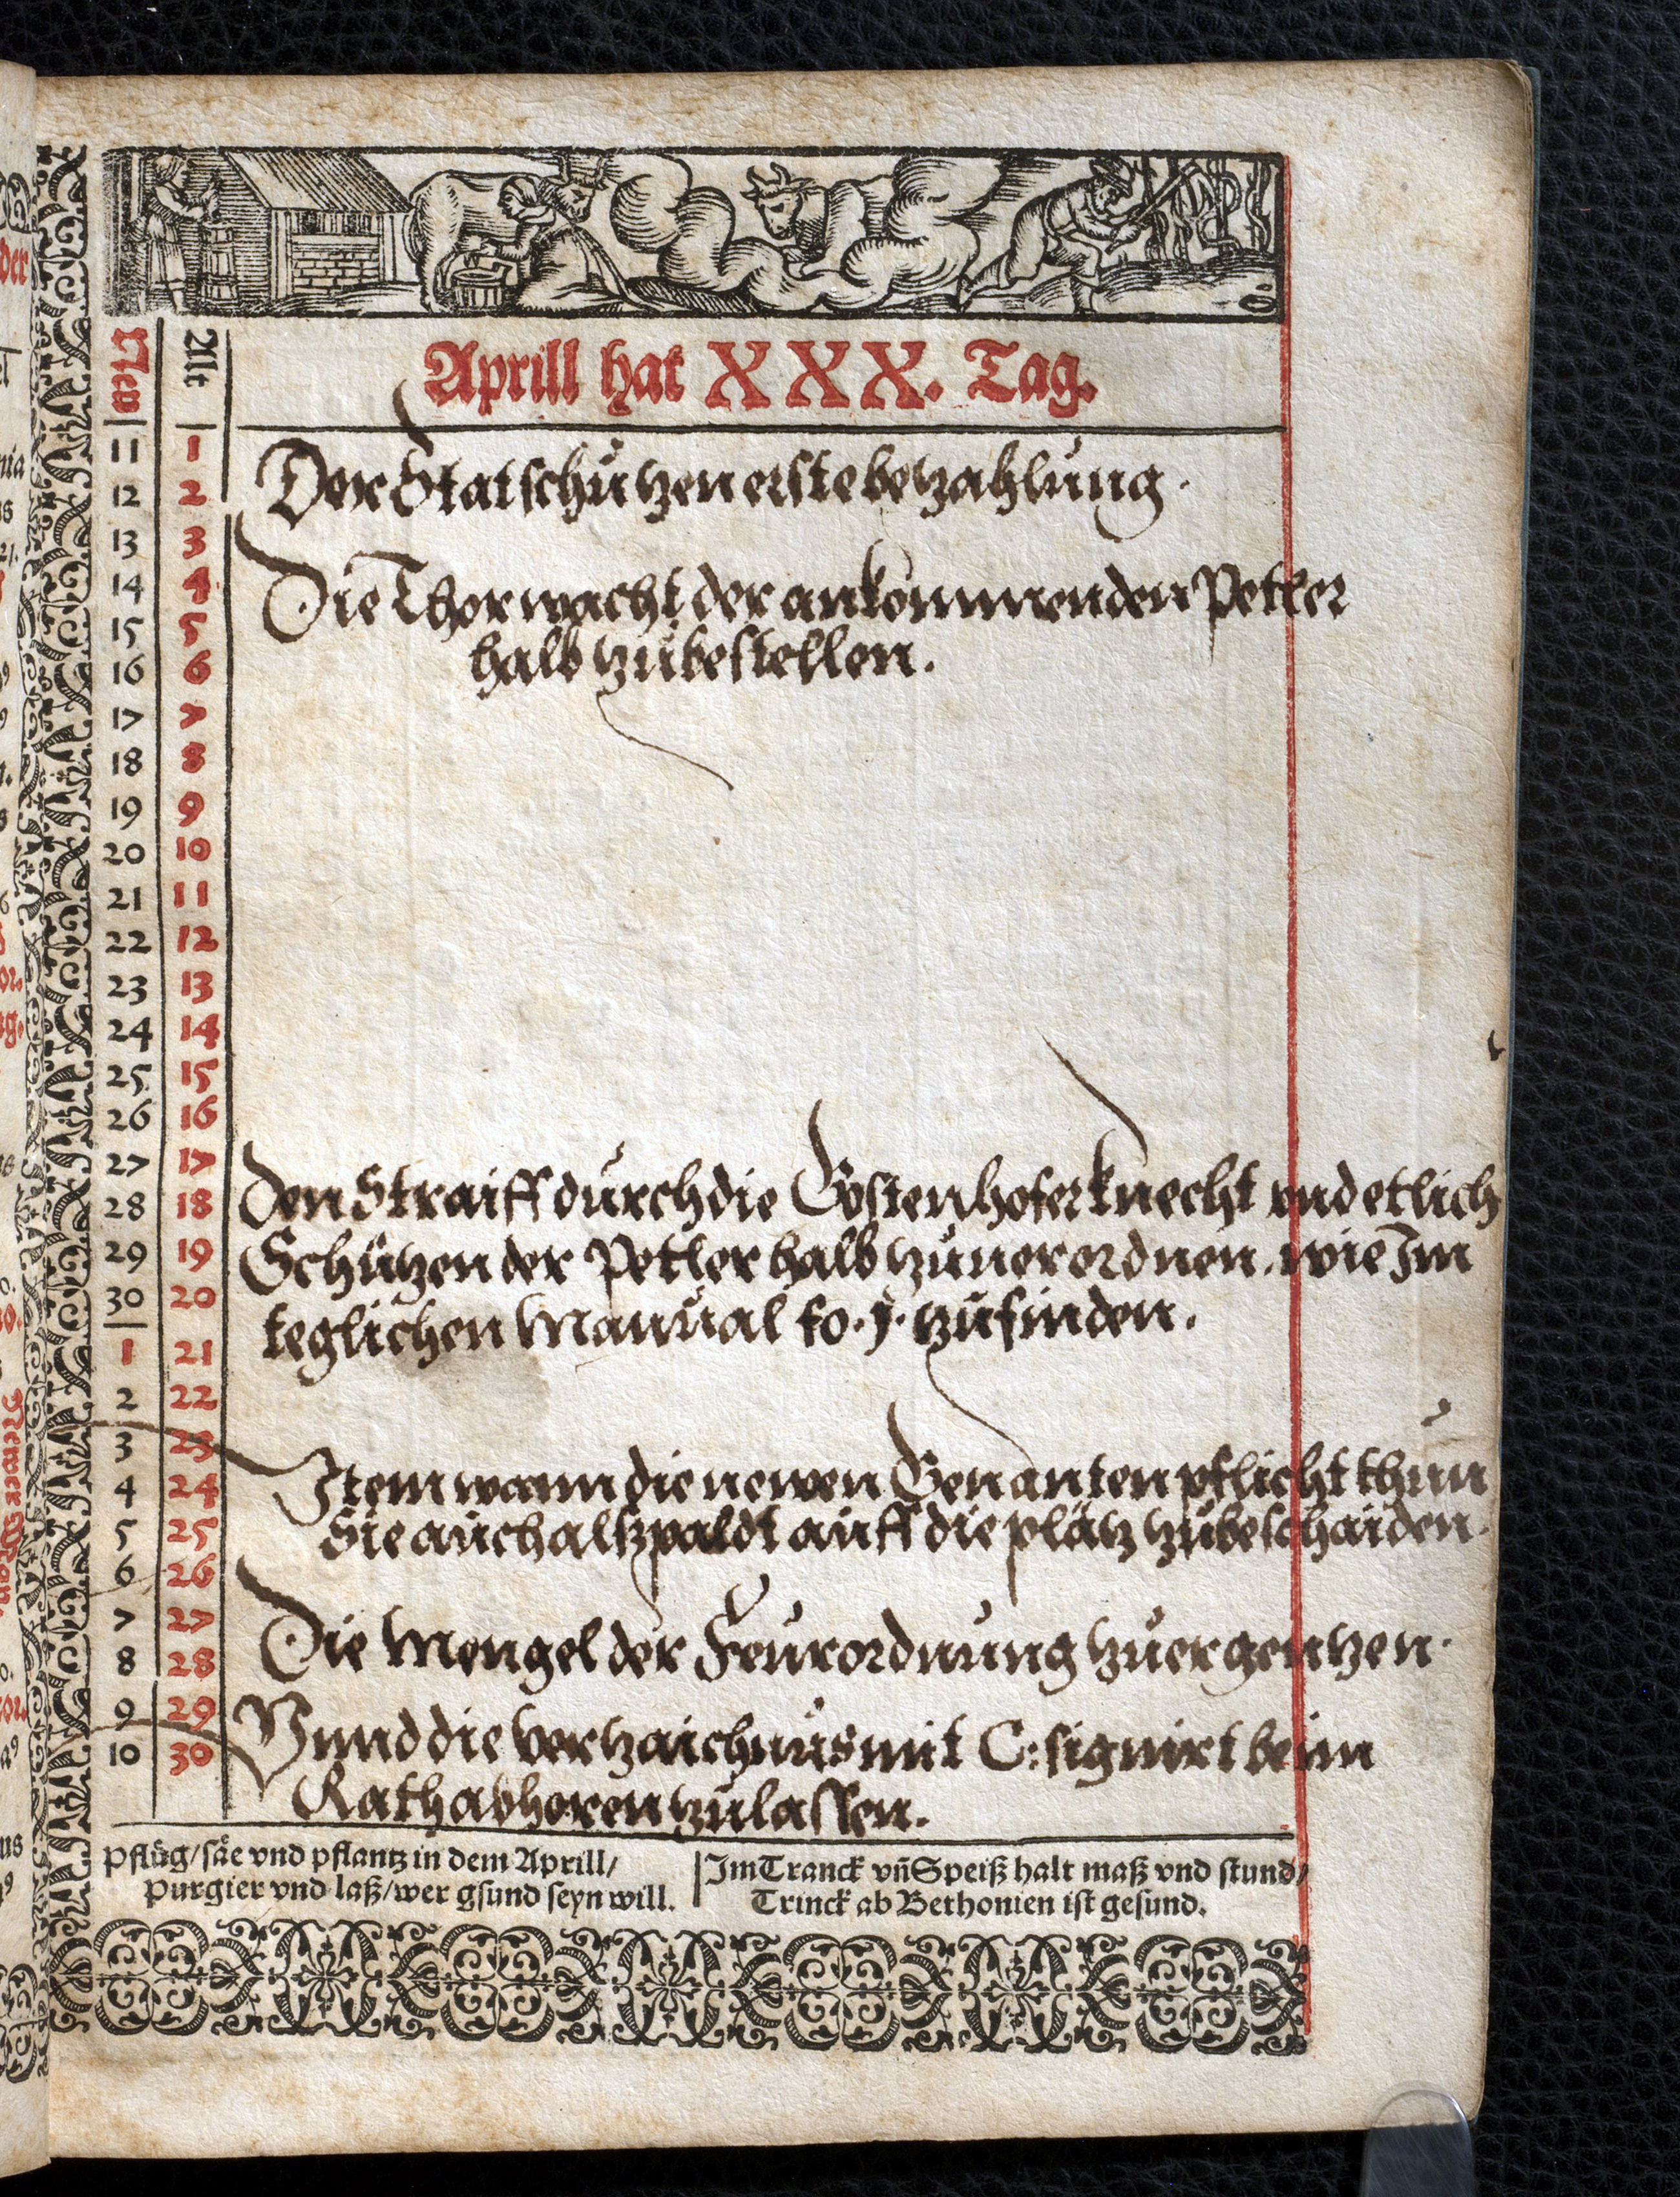 Aprill hat XXX. Tag.
New Alt
11 1
12 2
13 3
14 4
15 5
16 6
17 7
18 8
19 9
20 10
21 11
22 12
23 13
24 14
25 15
26 16
27 17
28 18
29 19
30 20
1 21
2 22
3 23
4 24
5 25
6 26
7 27
8 28
9 29
10 30
Der Statschützen erste bezahlung.
Die Thorwacht der ankommenden Petler
halb zubestellen.
Den Straiff durch die Gostenhofer knecht vnd etlich
Schützen der Petler halb zuuerordnen. wie Im
teglichen Manual fo. j. zufinden.
Item wann die newen Genanten pflicht thun
Sie auch alßpaldt auff die plätz zubeschaiden.
Die Mengel der Feurordnung zuergentzen.
Vnnd die verzaichnus mit C: signirt beim
Rath abhoren zulassen.
Pflüg/säe vnd pflantz in dem Aprill/
Purgier vnd laß/wer gsund seyn will.
Im Tranck vñ Speiß halt maß vnd stund/
Trinck ab Bethonien ist gesund.